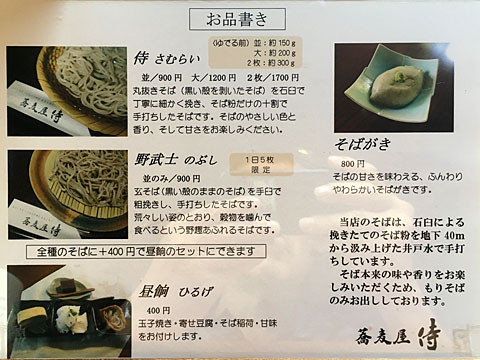 お品書き
侍 さむらい
(ゆでる前) 並：約150g
大：約200g
2枚：約300g
並／900円 大／1200円 2枚／1700円
丸抜きそば（黒い殻を剥いたそば）を石臼で
丁寧に細かく挽き、そば粉だけの十割で
手打ちしたそばです。そばのやさしい色と
香り、そして甘さをお楽しみください。
蕎麦屋 侍
そばがき
800円
そばの甘さを味わえる、ふんわり
やわらかいそばがきです。
野武士 のぶし
1日5枚
限定
並のみ／900円
玄そば（黒い殻のままのそば）を手臼で
粗挽きし、手打ちしたそばです。
荒々しい姿のとおり、穀物を噛んで
食べるという野趣あふれるそばです。
蕎麦屋 侍
全種のそばに＋400円で昼餉のセットにできます
昼餉 ひるげ
400円
玉子焼き・寄せ豆腐・そば稲荷・甘味
をお付けします。
当店のそばは、石臼による
挽きたてのそば粉を地下40m
から汲み上げた井戸水で手打
ちしています。
そば本来の味や香りをお楽
しみいただくため、もりそば
のみお出ししております。
蕎麦屋 侍